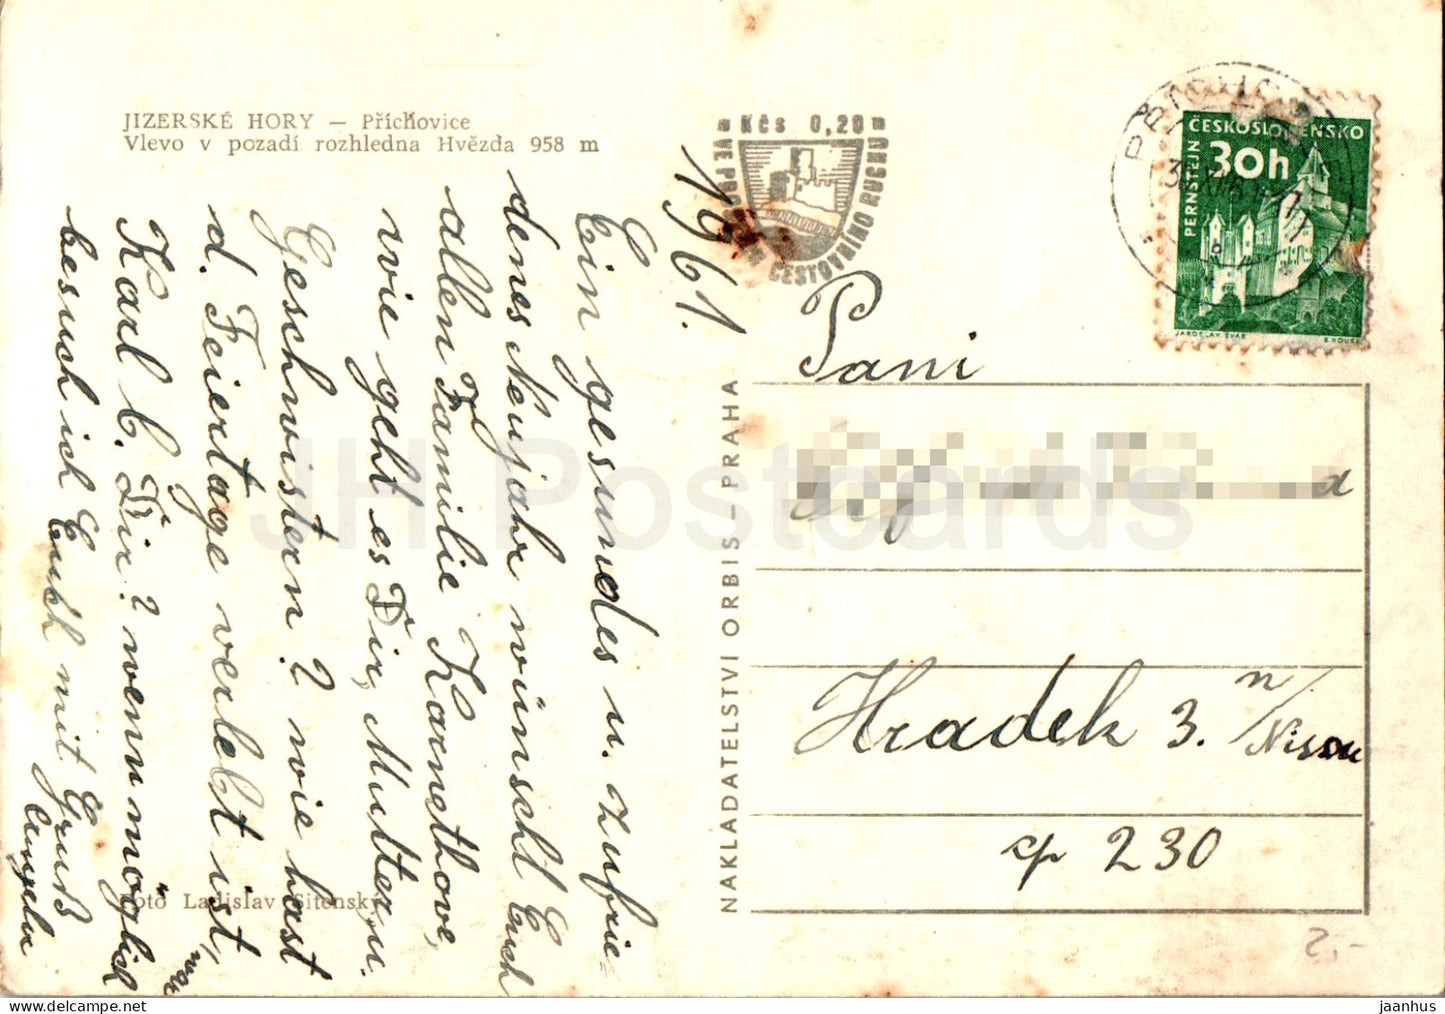 JIZERSKÉ HORY — Příchovice
Vlevo v pozadí rozhledna Hvězda 958 m
Kčs 0,20
ČESTOVNÍHO RUCHU
ČESKOSLOVENSKO
30h
PERNŠTEJN
JAROSLAV ŠVÁB
1961.
Ein gesundes u. zufrie=
denes Neujahr wünscht Euch
allen Familie Karnethove,
wie geht es Dir, Mutter u.
Geschwistern? wie hast
d. Feiertage verlebt ist,
Karl b. Dir? wenn möglich
besuch ich Euch mit Gruß
Angela
Foto Ladislav Sitenský
NAKLADATELSTVÍ ORBIS — PRAHA
Paní
Hradek 3. n/Nissou
čp 230
2,-
JH Postcards
jaanhus